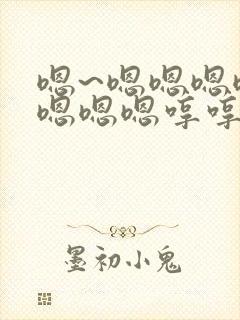 嗯~嗯嗯嗯
嗯嗯嗯哼哼
墨初小鬼